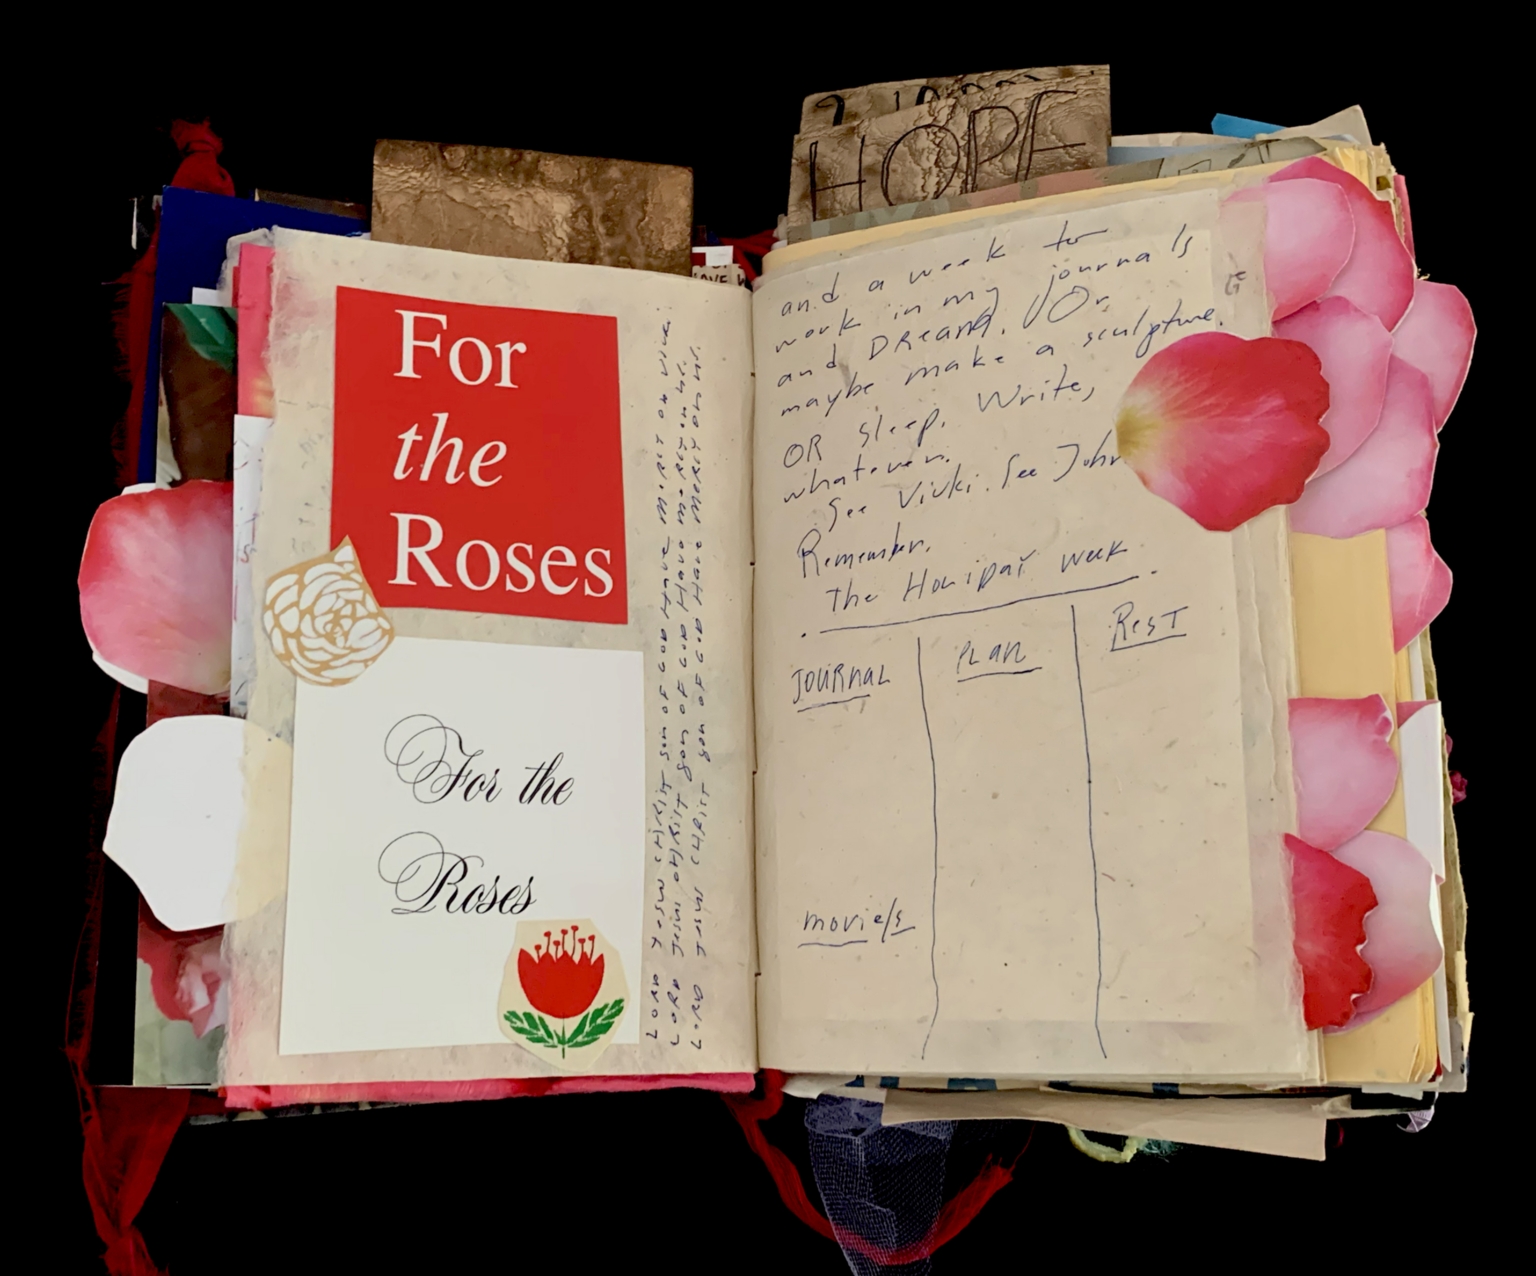 HOPE
For
the
Roses
For the
Roses
LORD JESUS CHRIST SON OF GOD HAVE MERCY ON Vicki.
LORD JESUS CHRIST SON OF GOD HAVE MERCY ON US.
LORD JESUS CHRIST SON OF GOD HAVE MERCY ON US.
and a week to
work in my journals
and DReams. Or
maybe make a sculpture.
OR sleep. Write,
whatever.
See Vicki. See John
Remember.
The Holiday week.
JOURNAL
PLAN
ReST
movie/s